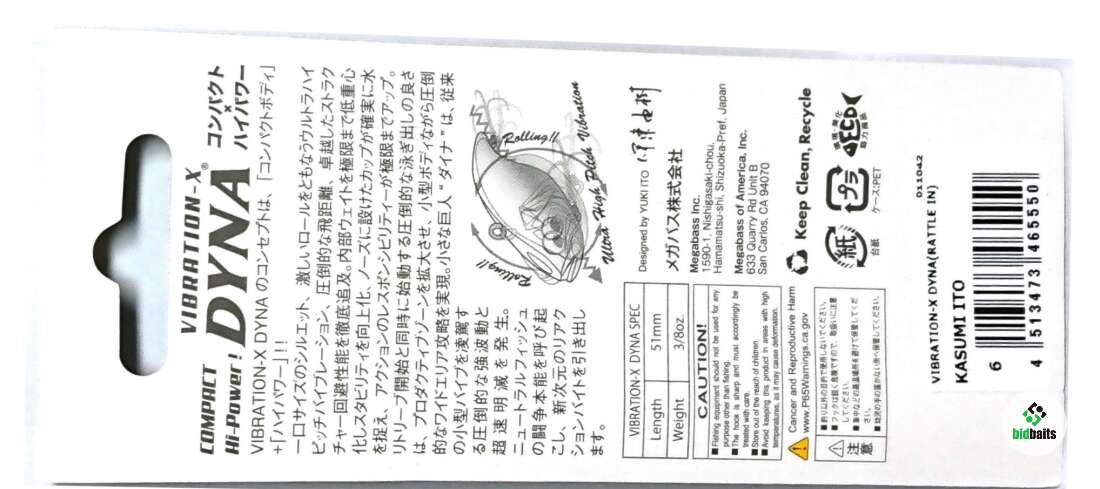 COMPACT
Hi-Power!
VIBRATION-X®
DYNA
コンパクト
×
ハイパワー
VIBRATION-X DYNA のコンセプトは、「コンパクトボディ」
+「ハイパワー」!!
一口サイズのシルエット、激しいロールをともなうウルトラハイ
ピッチバイブレーション、圧倒的な飛距離、卓越したストラク
チャー回避性能を徹底追及。内部ウェイトを極限まで低重心
化しスタビリティを向上化、ノーズに設けたカップが確実に水
を捉え、アクションのレスポンシビリティーが極限までアップ。
リトリーブ開始と同時に始動する圧倒的な泳ぎ出しの良さ
は、プロダクティブゾーンを拡大させ、小型ボディながら圧倒
的なワイドエリア攻略を実現。小さな巨人“ダイナ”は、従来
の小型バイブを凌駕す
る圧倒的な強波動と
超速明滅を発生。
ニュートラルフィッシュ
の闘争本能を呼び起
こし、新次元のリアク
ションバイトを引き出し
ます。
Rolling!!
Rolling!!
Ultra High Pitch Vibration
VIBRATION-X DYNA SPEC
Length 51mm
Weight 3/8oz.
Designed by YUKI ITO
メガバス株式会社
Megabass Inc.
1590-1, Nishigasaki-chou,
Hamamatsu-shi, Shizuoka-Pref, Japan
Megabass of America, Inc.
633 Quarry Rd Unit B
San Carlos, CA 94070
CAUTION!
■Fishing equipment should not be used for any
purpose other than fishing.
■The hook is sharp and must accordingly be
treated with care.
■Store out of the reach of children.
■Avoid keeping this product in areas with high
temperatures, as it may cause deformation.
Cancer and Reproductive Harm
www.P65Warnings.ca.gov
Keep Clean, Recycle
注意
■釣り以外の目的で使用しないでください。
■フックは鋭く危険ですので、取扱いに注意
してください。
■車中などの高温場所を避けて保管してくだ
さい。
■幼児の手の届かない所へ保管してください。
紙
台紙
プラ
ケース:PET
011042
VIBRATION-X DYNA(RATTLE IN)
KASUMI ITO
6
4 513473 465550
bidbaits